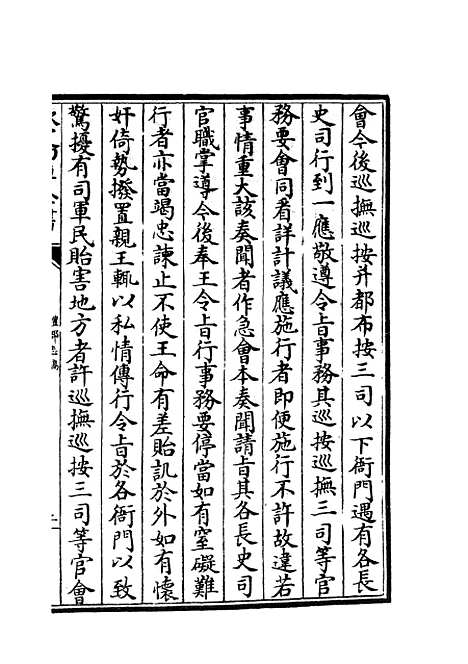 會今後巡撫巡按并都布按三司以下衙門遇有各長
史司行到一應敬遵令旨事務其巡按巡撫三司等官
務要會同看詳計議應施行者即便施行不許故違若
事情重大該奏聞者作急會本奏聞請旨其各長史司
官職掌導令後奉王令旨行事務要停當如有窒礙難
行者亦當竭忠諫止不使王命有差貽訕於外如有懷
奸倚勢撥置親王輒以私情傳行令旨於各衙門以致
驚擾有司軍民貽害地方者許巡撫巡按三司等官會